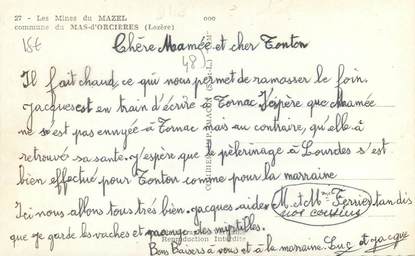 27 - Les Mines du MAZEL
commune du MAS-d'ORCIÈRES (Lozère)
Chère Mamée et cher Tonton
Il fait chaud, ce qui nous permet de ramosser le foin.
Jacques est en train d'écrire à Tornac J'éspère que Mamée
ne s'est pas ennyée à Tornac mais au contraire, qu'elle à
retrouvé sa santé. J'éspère que le pèlerinage à Lourdes s'est
bien effectué pour Tonton comme pour la marraine
Ici nous allons tous très bien. Jacques aide M. et Mme Ferrier tandis
nos cousins
que je garde les vaches et ramasse des myrtilles.
Reproduction Interdite
Bons Baisers à vous et à la marraine. Luc et Jacques